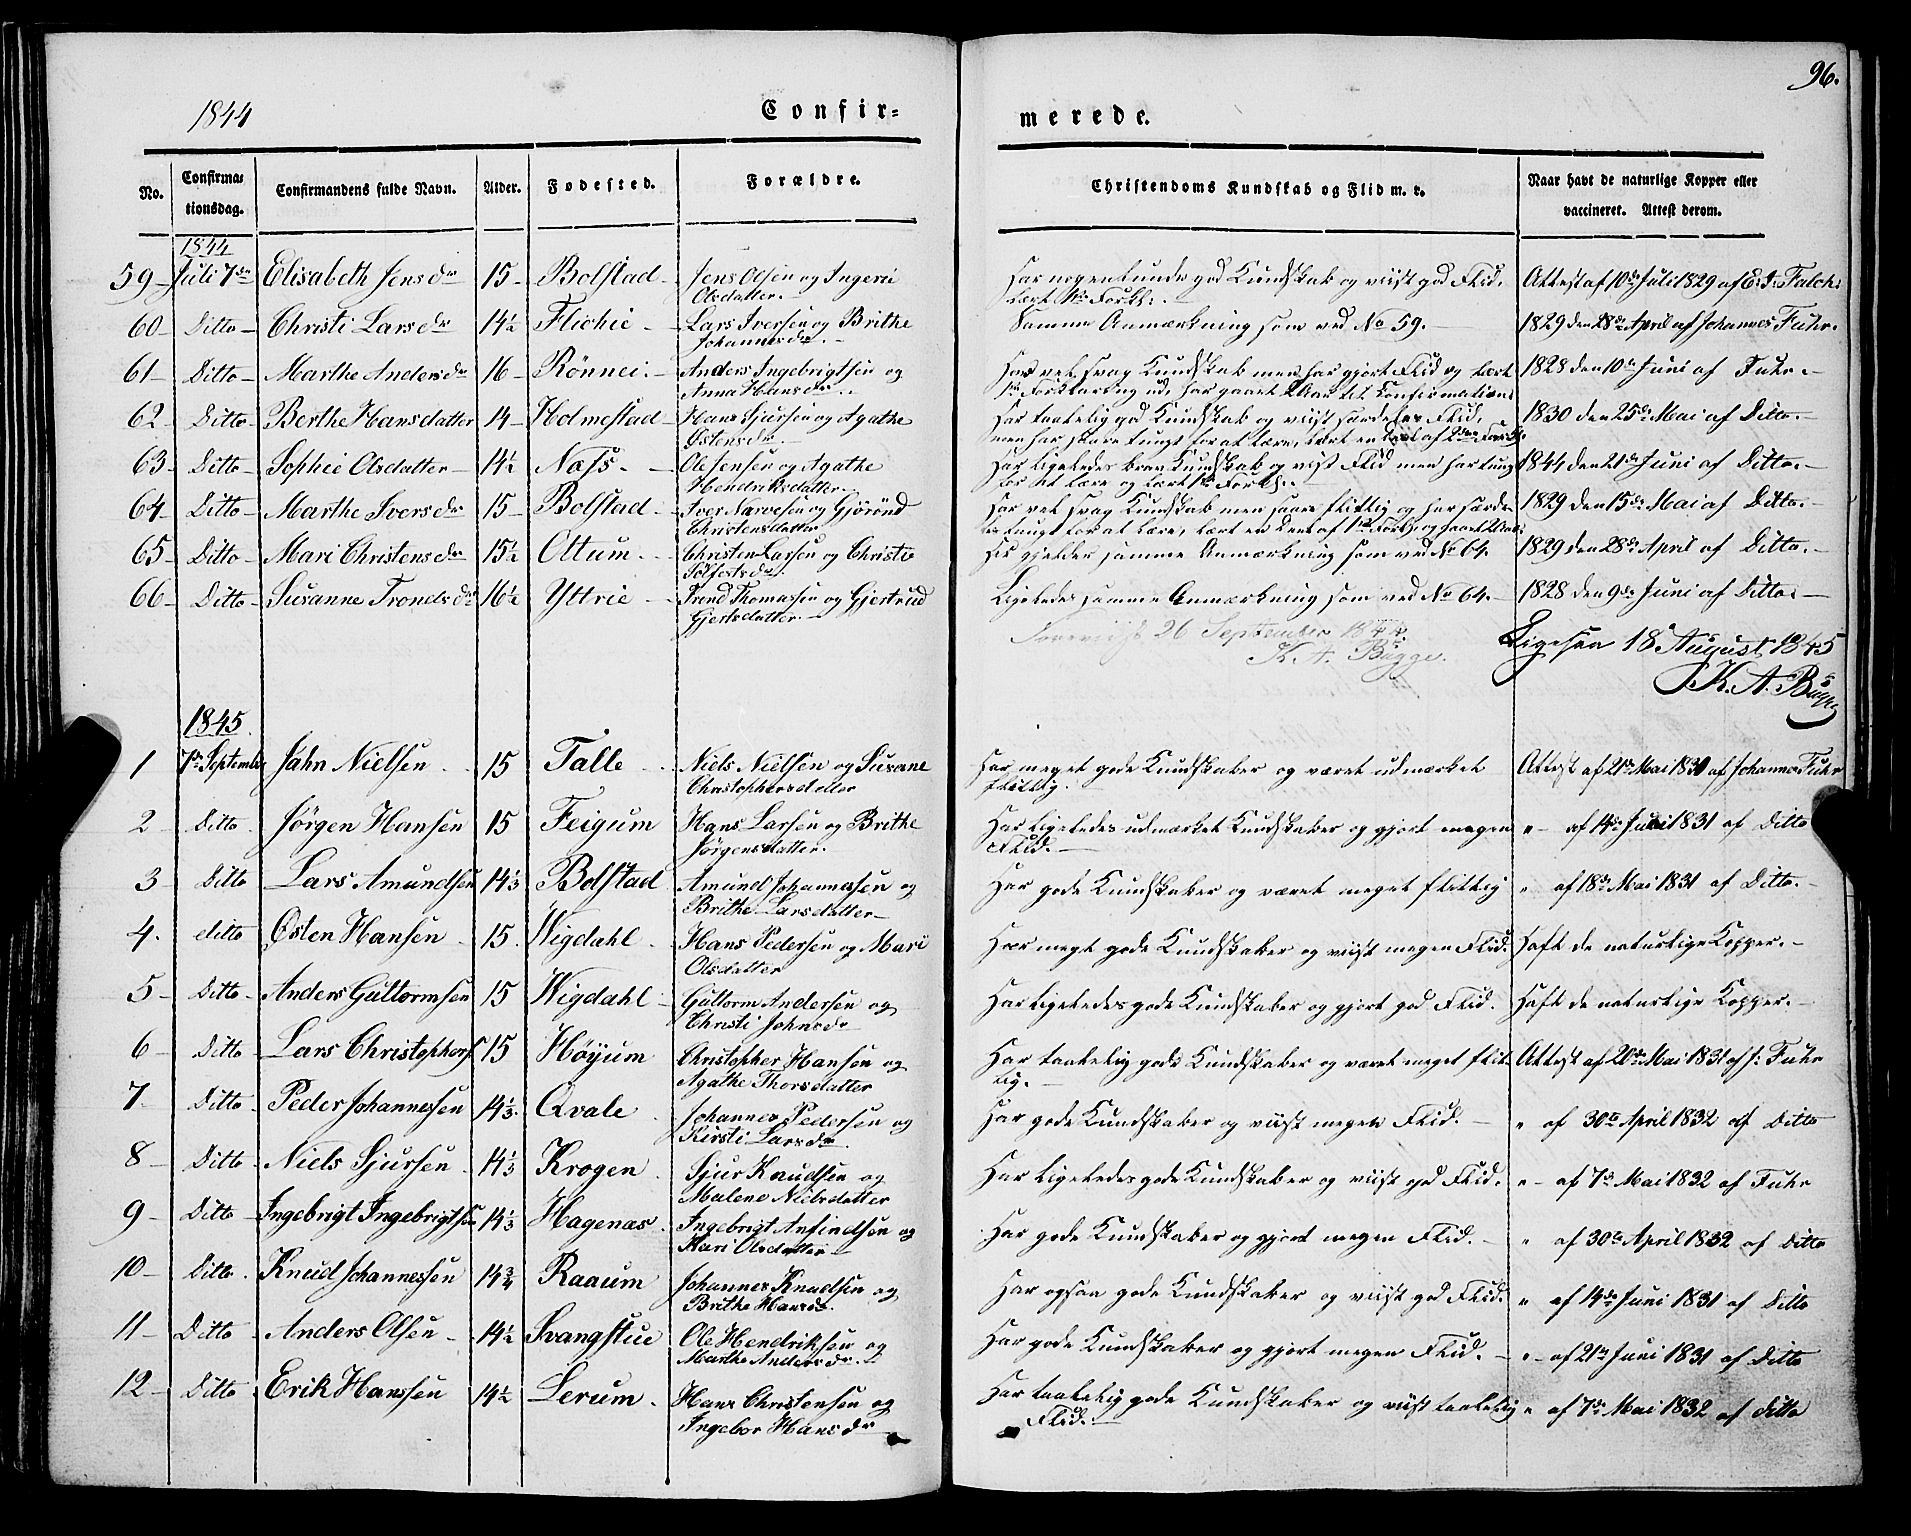 96.
1844 Confir- merede.
No. Confirmationsdag. Confirmandens fulde Navn. Alder. Fødested. Forældre. Christendoms Kundskab og Flid m. v. Naar havt de naturlige Kopper eller vaccineret. Attest derom.
1844
59 Juli 7de Elisabeth Jensdr 15 Bolstad Jens Olsen og Ingeri Olsdatter. Har nogenlunde god Kundskab og viist god Flid, lært Forkl: Attest af 10de Juli 1829 af E. Falch:
60 Ditto Christi Larsdr 14½ Flichie Lars Iversen og Brithe Johannesdr. Samme Anmærkning som ved No 59. 1829 den 28de April af Johannes Fuhr.
61 Ditto Marthe Andersdr 16 Rönnei Anders Ingebrigtsen og Anna Hansdr. Har vel svag Kundskab men har gjort Flid og lært Forklaring ud, har gaaet 2 Aar til Konfirmation 1828 den 10de Juni af Fuhr.
62 Ditto Berthe Hansdatter 14 Holmestad Hans Sjursen og Agathe Østensdr. Har taalelig god Kundskab og viist særdeles Flid, men har svært tungt for at lære, lært en Deel af 2den Forkl: 1830 den 25de Mai af Ditto.
63 Ditto Sophie Olsdatter 14½ Næss Ole Jensen og Agathe Hendriksdatter. Har ligeledes brav Kundskab og viist Flid men har tungt for at lære og lært Forkl: 1844 den 21de Juni af Ditto.
64 Ditto Marthe Iversdr 15 Bolstad Iver Narvesen og Gjørond Christensdatter Har vel svag Kundskab men saare flittig og har særdeles tungt for at lære, lært en Deel af Forkl: og gaaet 2 Aar 1829 den 15de Mai af Ditto.
65 Ditto Mari Christensdr 15½ Ottum Christen Larsen og Christie Solfestsdr. Her gjelder samme Anmærkning som ved No 64. 1829 den 28de April af Ditto.
66 Ditto Susanne Trondsdr 16½ Yttrie Trond Thomassen og Gjertrud Gjertsdatter. Ligeledes samme Anmærkning som ved No 64. 1828 den 9de Juni af Ditto.
Foreviist 26 September 1844.
K. A. Bugge.
Ligesaa 18 August 1845
K. A. Bugge
1845
1 7de September Jahn Nielsen 15 Talle Niels Nielsen og Susane Christophersdatter Har meget gode Kundskaber og været udmærket flittig. Attest af 21de Mai 1830 af Johannes Fuhr
2 Ditto Jörgen Hansen 15 Feigum Hans Larsen og Brithe Jörgensdatter. Har ligeledes udmærket Kundskaber og gjort megen Flid. " af 14de Juni 1831 af Ditto
3 Ditto Lars Amundsen 14⅓ Bolstad Amund Johannessen og Brithe Larsdatter Har gode Kundskaber og været meget flittig " af 18de Mai 1831 af Ditto.
4. ditto Østen Hansen 15 Wigdahl Hans Pedersen og Mari Olsdatter Har meget gode Kundskaber og viist megen Flid. Haft de naturlige Kopper.
5 Ditto Anders Guttormsen 15 Wigdahl Guttorm Andersen og Christi Johnsdr Har ligeledes gode Kundskaber og gjort god Flid. Haft de naturlige Kopper.
6 Ditto Lars Christophers 15 Höyum Christopher Hansen og Agathe Thorsdatter Har taalelig gode Kundskaber og været meget flittig. Attest af 20de Mai 1831 af J: Fuhr
7 Ditto Peder Johannessen 14⅓ Qvale Johannes Pedersen og Kirsti Larsdr. Har gode Kundskaber og viist megen Flid. " af 30te April 1832 af Ditto
8 Ditto Niels Sjursen 14⅓ Krogen Sjur Knudsen og Malene Nielsdatter Har ligeledes gode Kundskaber og viist god Flid. " af 7de Mai 1832 af Fuhr
9 Ditto Ingebrigt Ingebrigtsen 14⅓ Hagenæs Ingebrigt Anfindsen og Kari Olsdatter Har gode Kundskaber og gjort megen Flid. " af 30te April 1832 af Ditto
10 Ditto Knud Johannessen 14¾ Raaum Johannes Knudsen og Brithe Hansdr. Har ogsaa gode Kundskaber og viist god Flid. " af 14de Juni 1831 af Ditto
11 Ditto Anders Olsen 14½ Svangstue Ole Hendriksen og Marthe Andersdr. Har gode Kundskaber og gjort megen Flid. " af 21de Juni 1831 af Ditto
12 Ditto Erik Hanssen 14½ Lerum Hans Christensen og Ingebor Hansdr Har taalelig gode Kundskaber og viist taalelig Flid. " af 7de Mai 1832 af Ditto